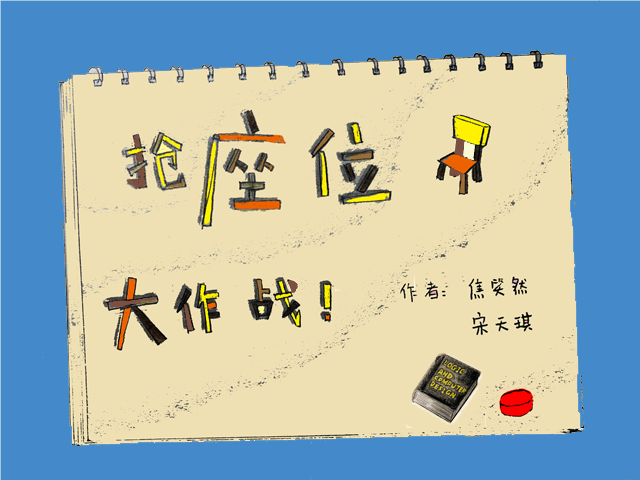 抢座位
大作战！
作者：焦奕然
宋天琪
LOGIC
AND
COMPUTER
DESIGN